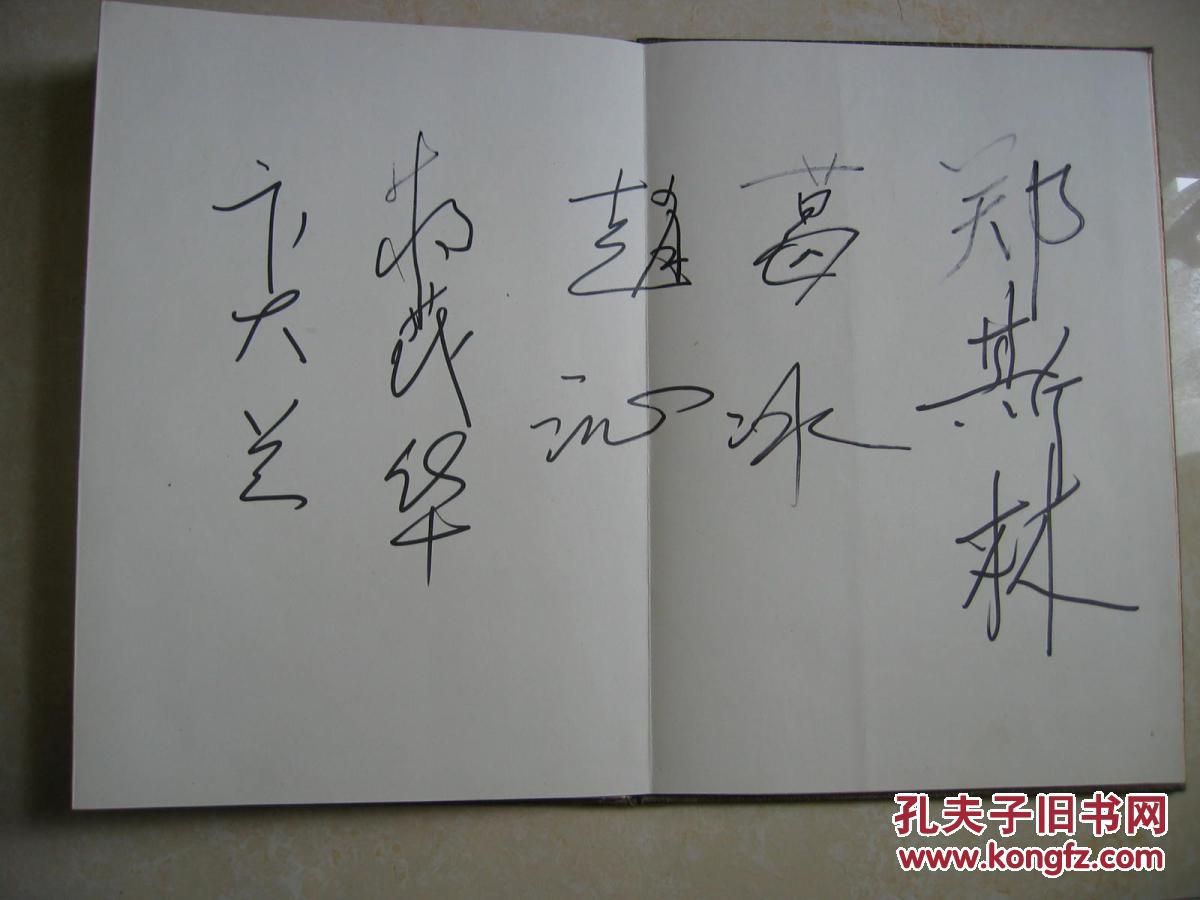 郑斯林
葛冰
赵沁
蒋茂华
卞大兰
孔夫子旧书网
www.kongfz.com